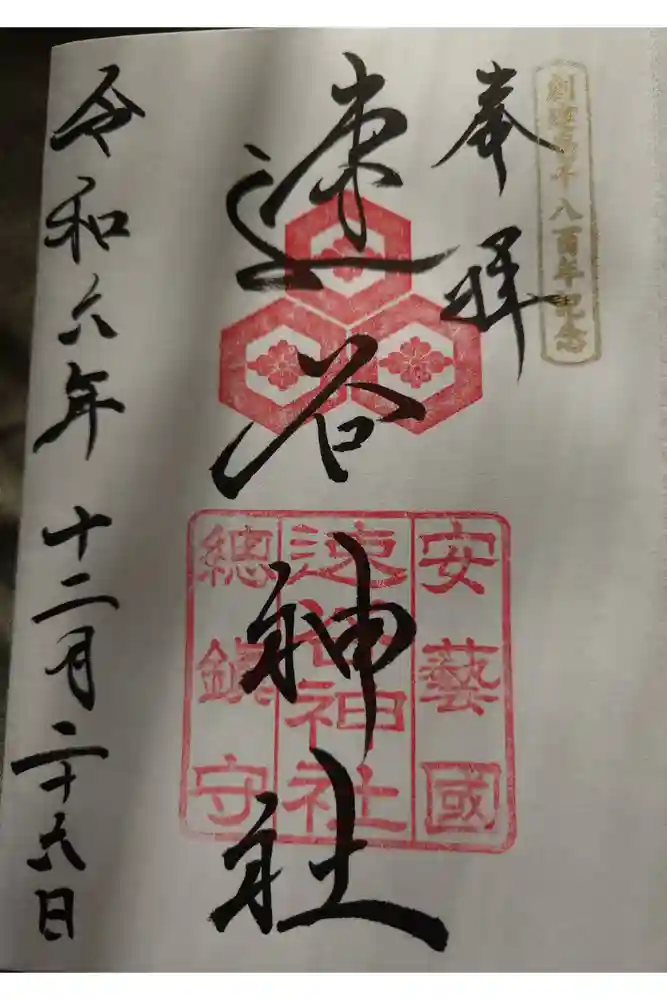 創建壱千八百年記念
奉拝
速谷神社
安藝國
速谷神社
總鎮守
令和六年十二月二十六日